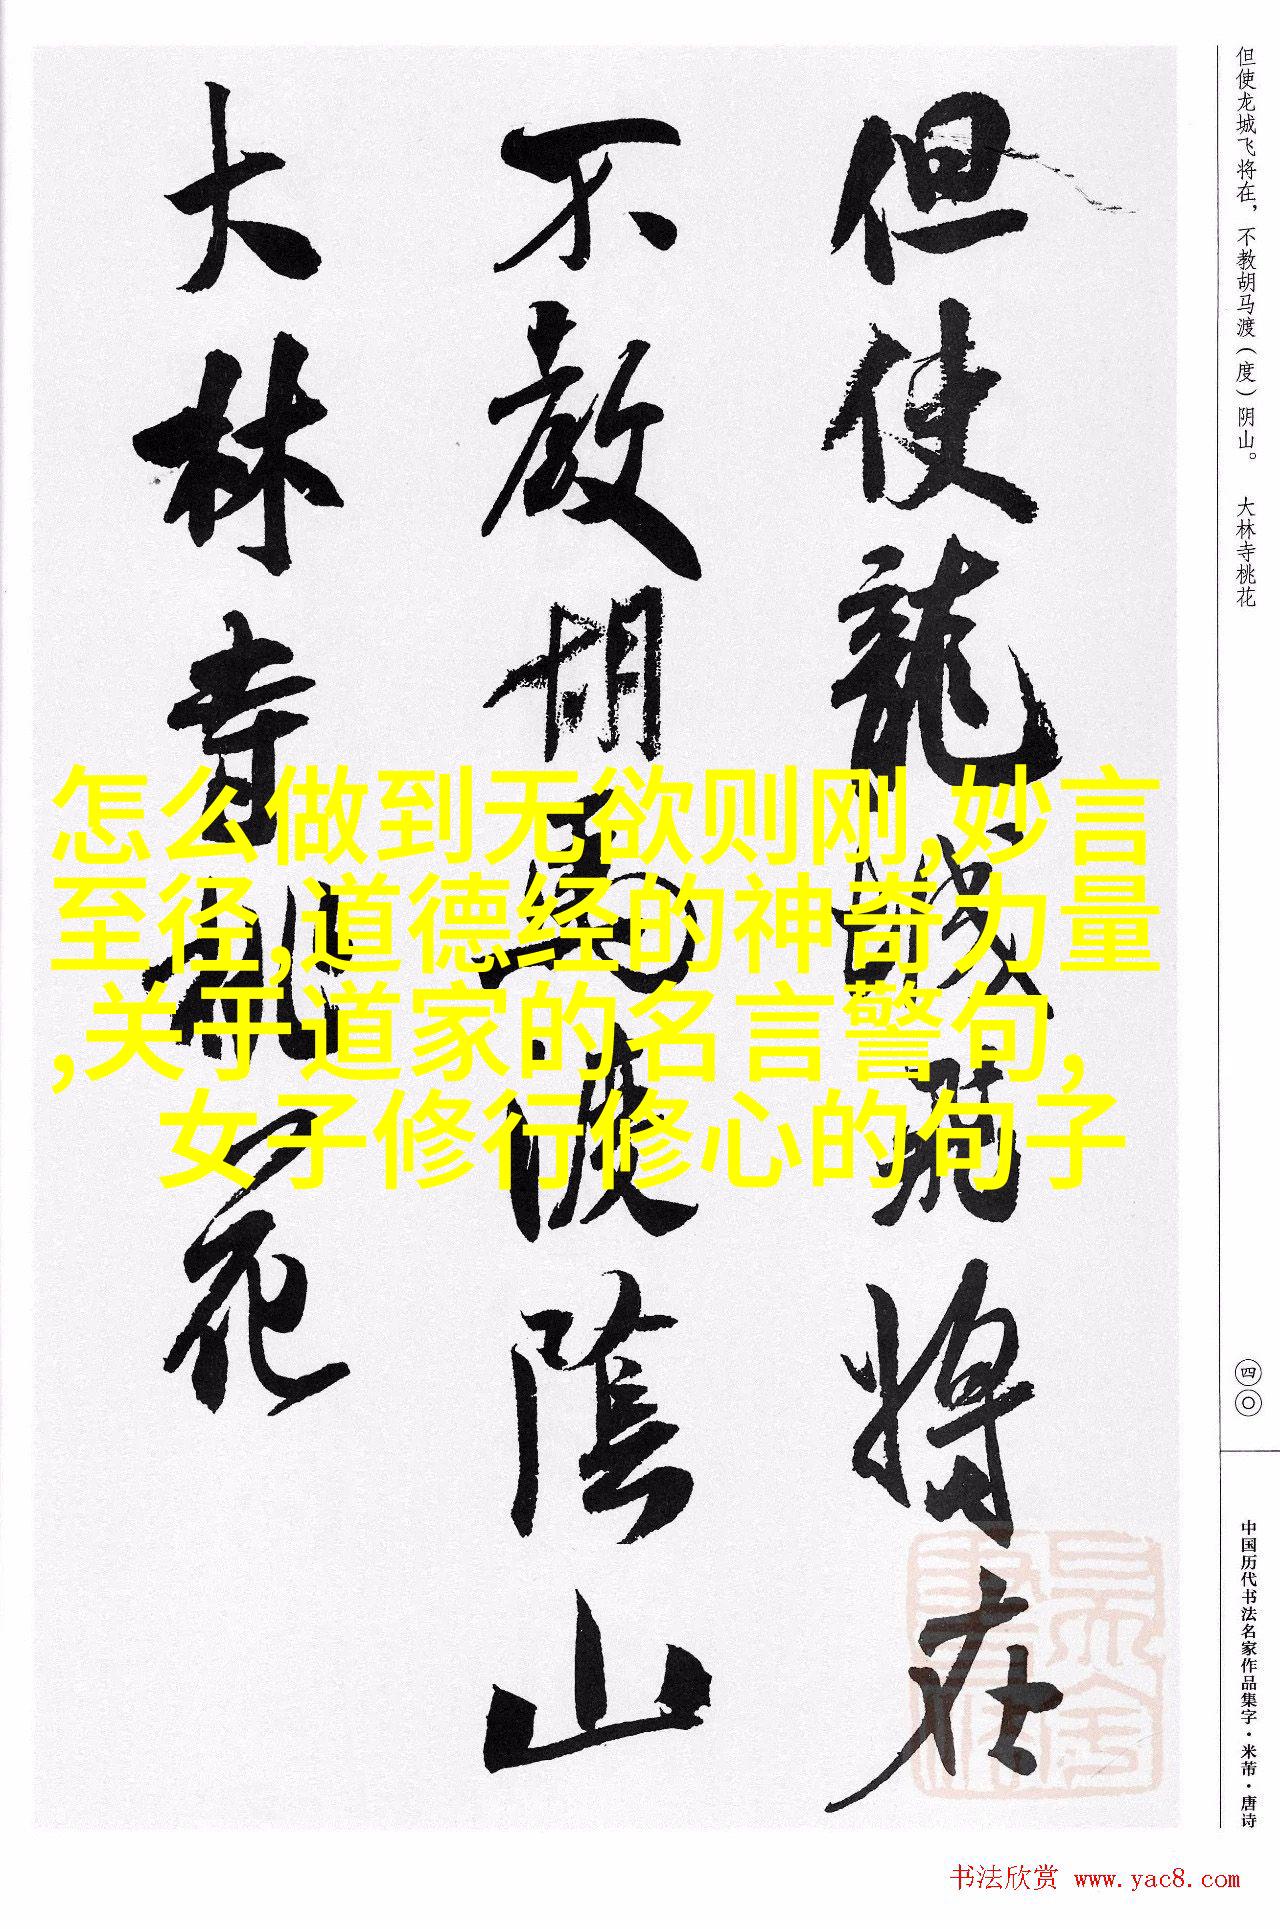 但使龍城飛將在
不教胡馬渡陰山
大林寺桃花
但使龙城飞将在，不教胡马渡（度）阴山。 大林寺桃花
四〇
中国历代书法名家作品集字·米芾·唐诗
怎么做到无欲则刚,妙言
至径,道德经的神奇力量
,关于道家的名言警句,
女子修行修心的句子
书法欣赏 www.yac8.com